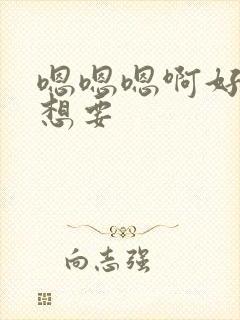 嗯嗯嗯啊好
想要
向志强